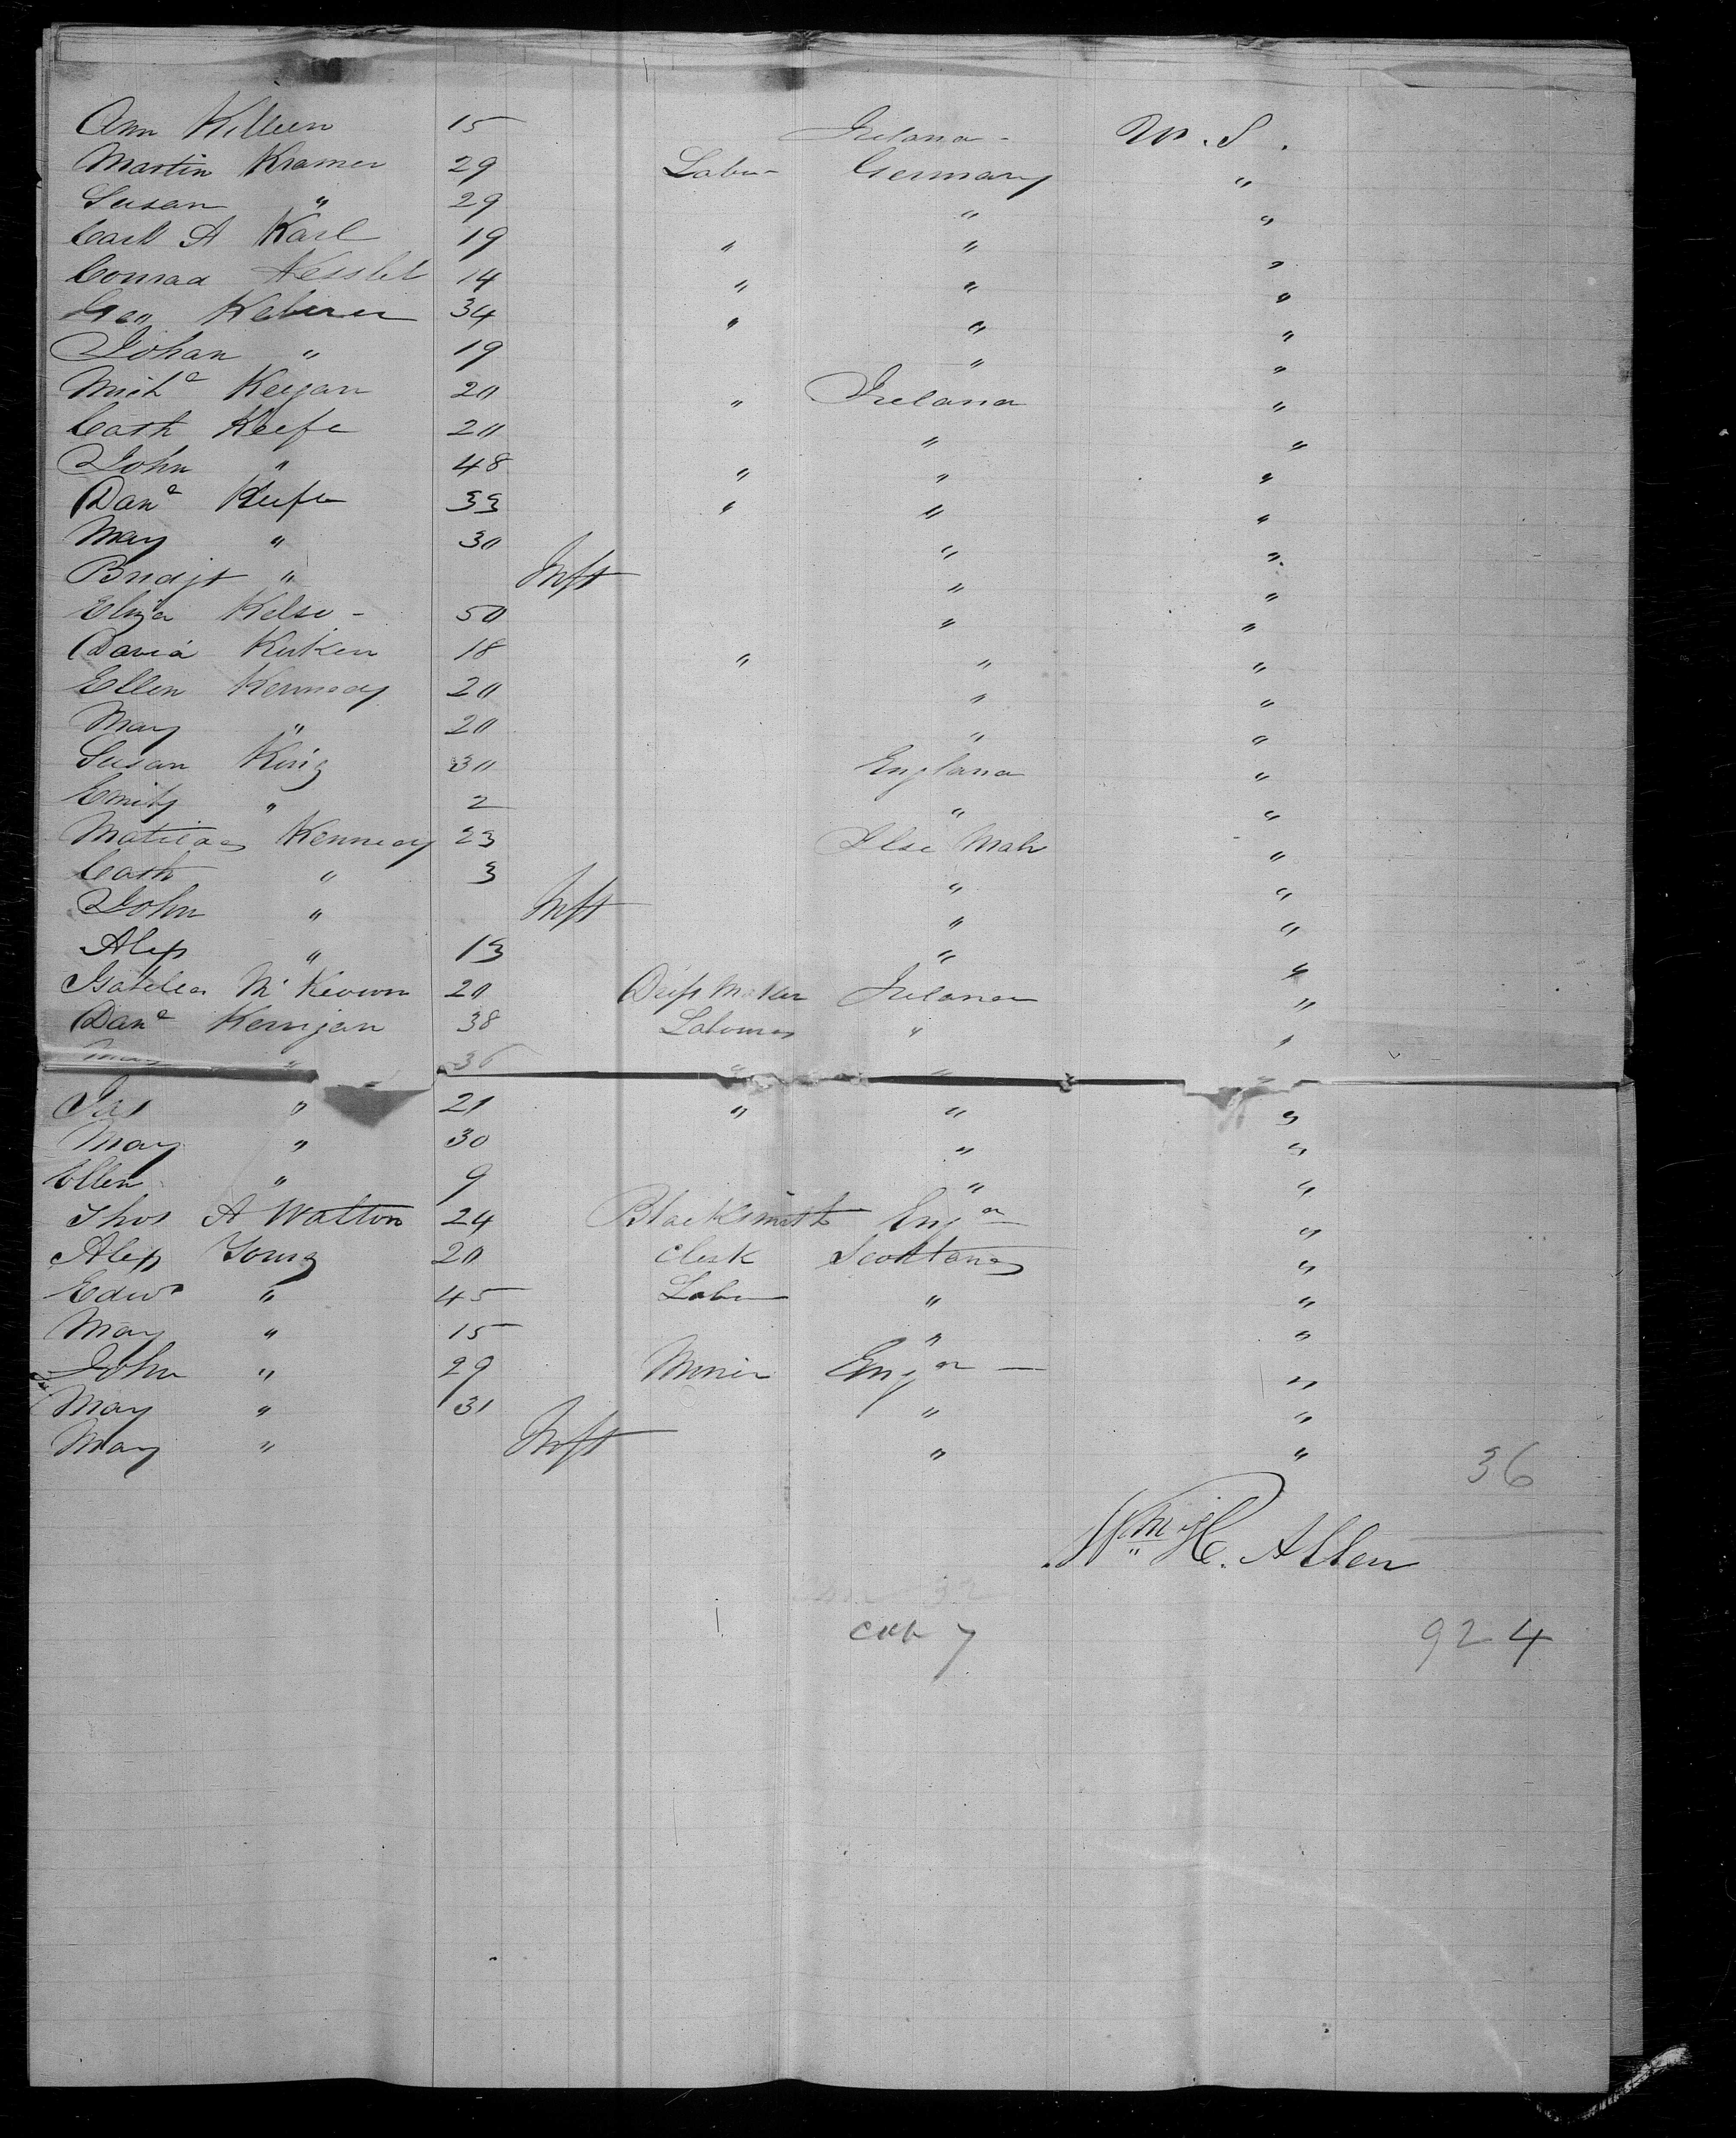 Ann Killeen 15 Ireland - U. S.
Martin Kramer 29 Labr Germany "
Susan " 29 " "
Carl A Karl 19 " " "
Conrad Kesslel 14 " " "
Geo 34 " " "
Johan " 19 " "
Mich Keegan 20 " Ireland "
Cath Keefe 20 " "
John " 48 " " "
Dan Keefe 33 " " "
Mary " 30 " "
Bridgt " Inft " "
Eliza Kelso - 50 " "
David 18 " " "
Ellen Kennedy 20 " "
Mary " 20 " "
Susan King 30 England "
Emily " 2 " "
Matilda Kennedy 23 Ilse Man "
Cath " 3 " "
John " Inft " "
Alex " 13 " "
Isabella Mc Keown 20 Maker Ireland "
Dan Kerrigan 38 Labourer " "
Mary " 36 " " "
Jas " 21 " " "
Mary " 30 " "
Ellen " 9 " "
Thos A Walton 24 Blacksmith Engd "
Alex Young 20 Clerk Scotland "
Edwd " 45 Labr " "
Mary " 15 " "
John " 29 Miner Engd - "
Mary " 31 " "
Mary " Inft " "
36
Wm H. Allen
7
924